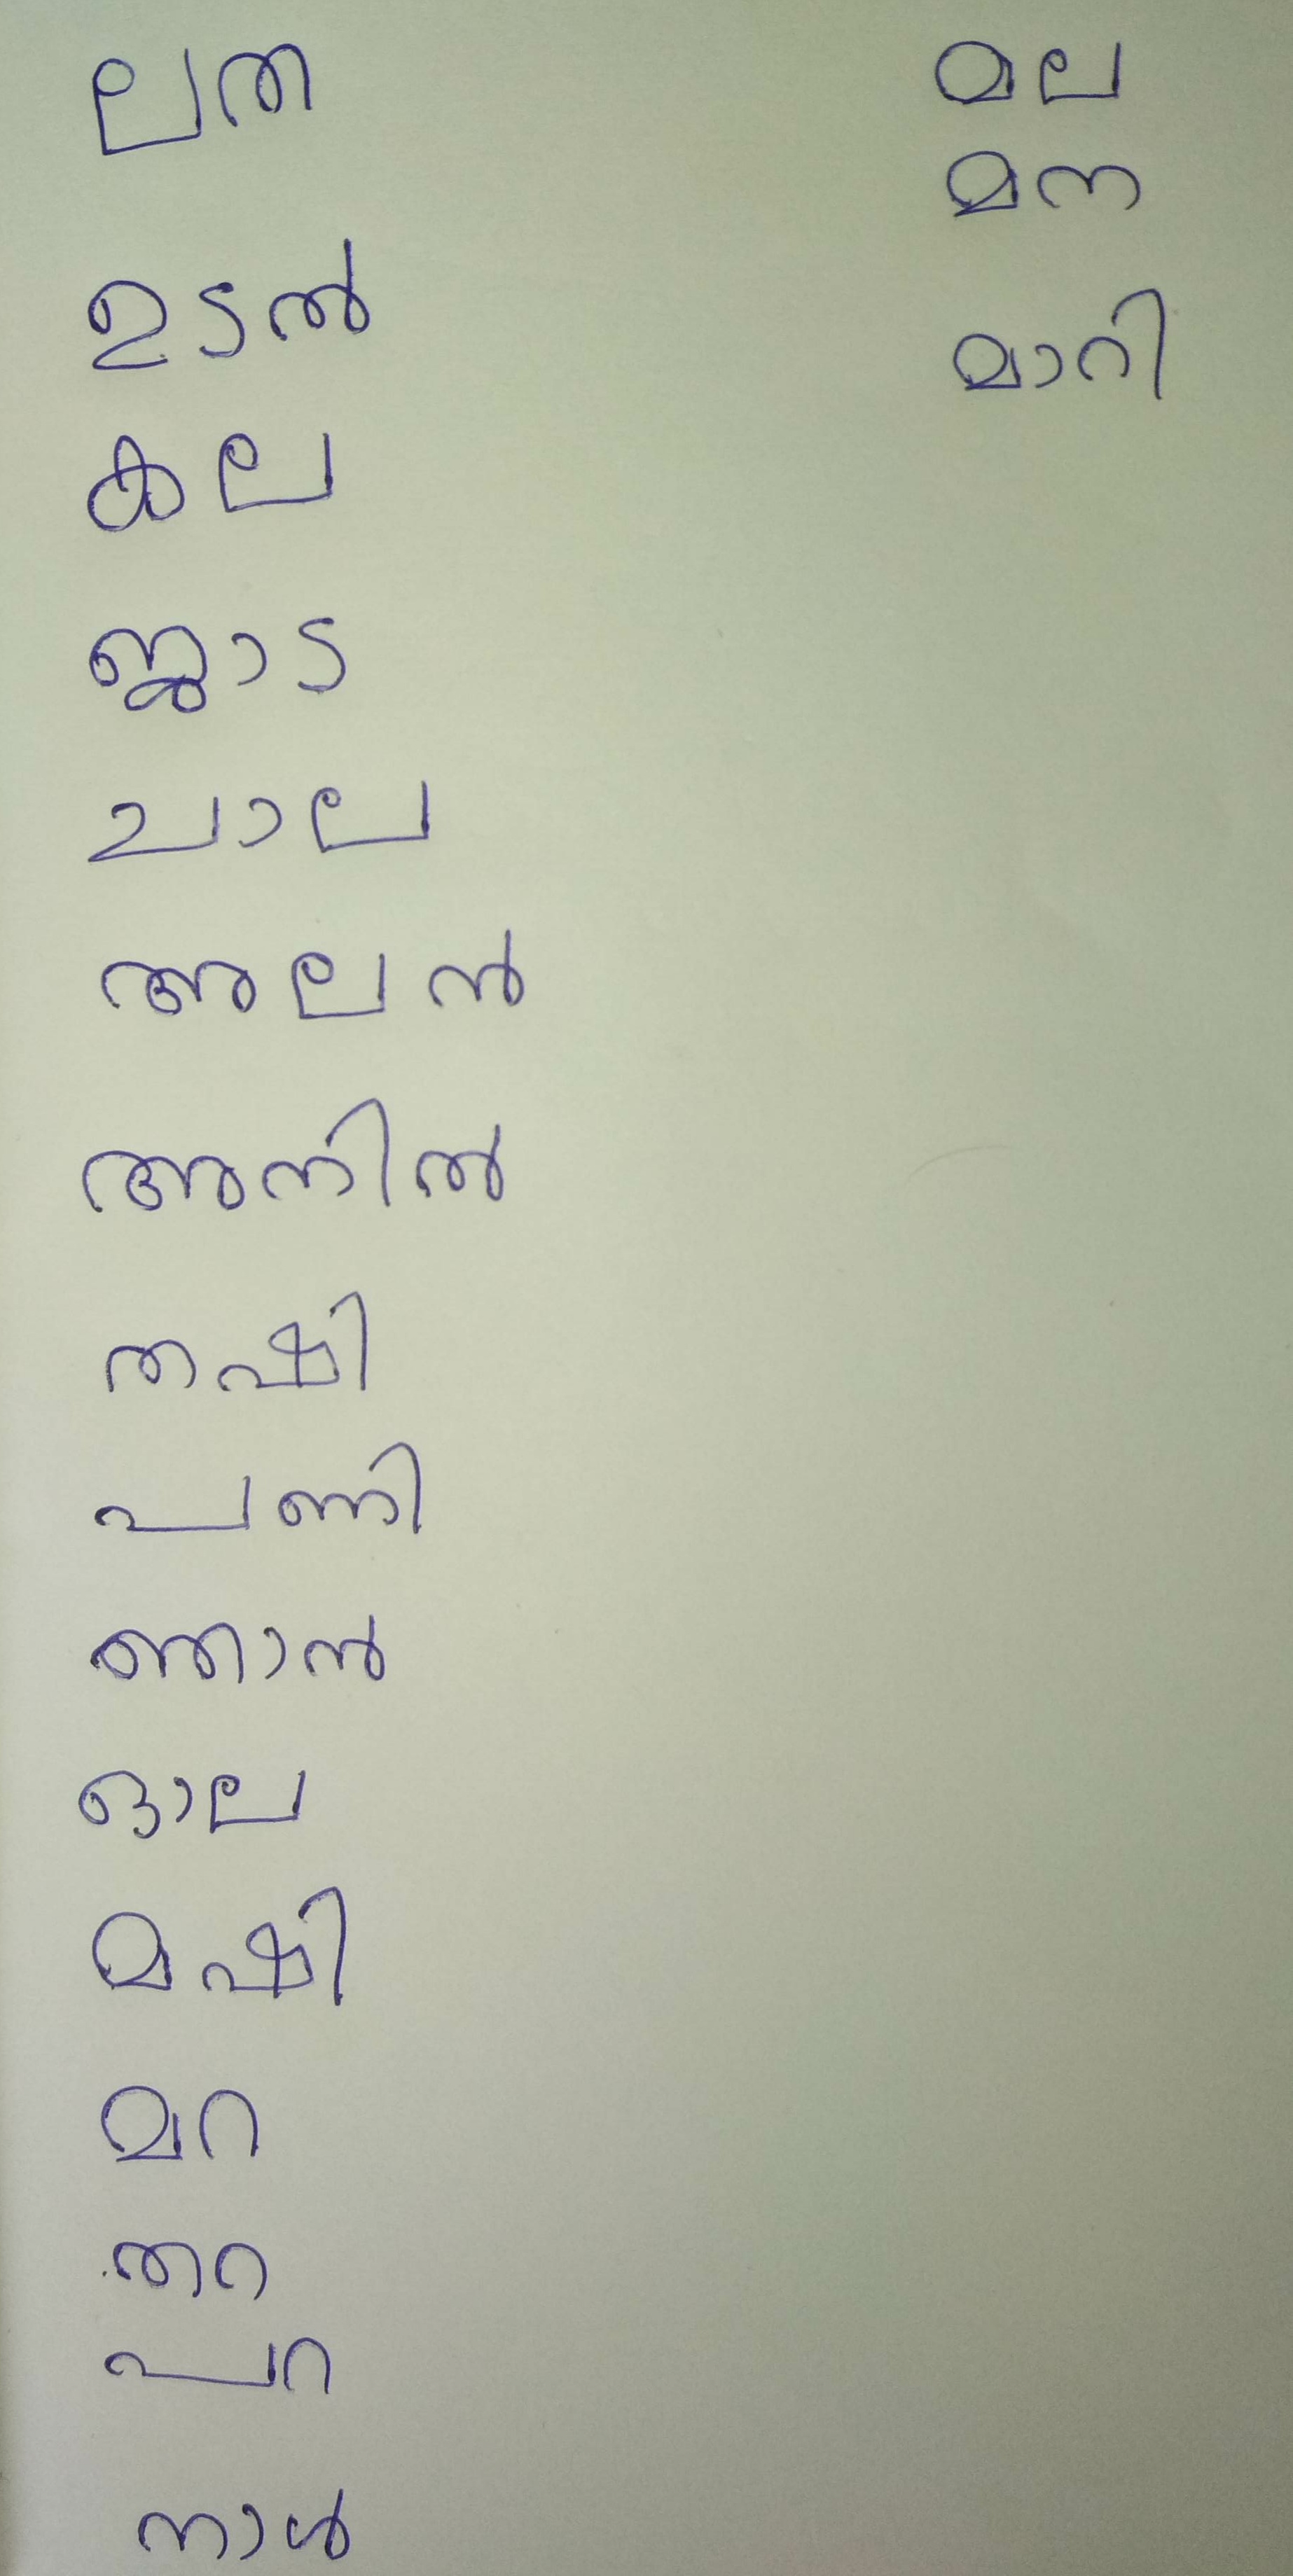 ലത
ഉടൽ
കല
ജാട
ചാല
അലൻ
അനിൽ
തഷി
പണി
ഞാൻ
ഓല
മഷി
മറ
തറ
പറ
നാൾ
മല
മന
മാറി